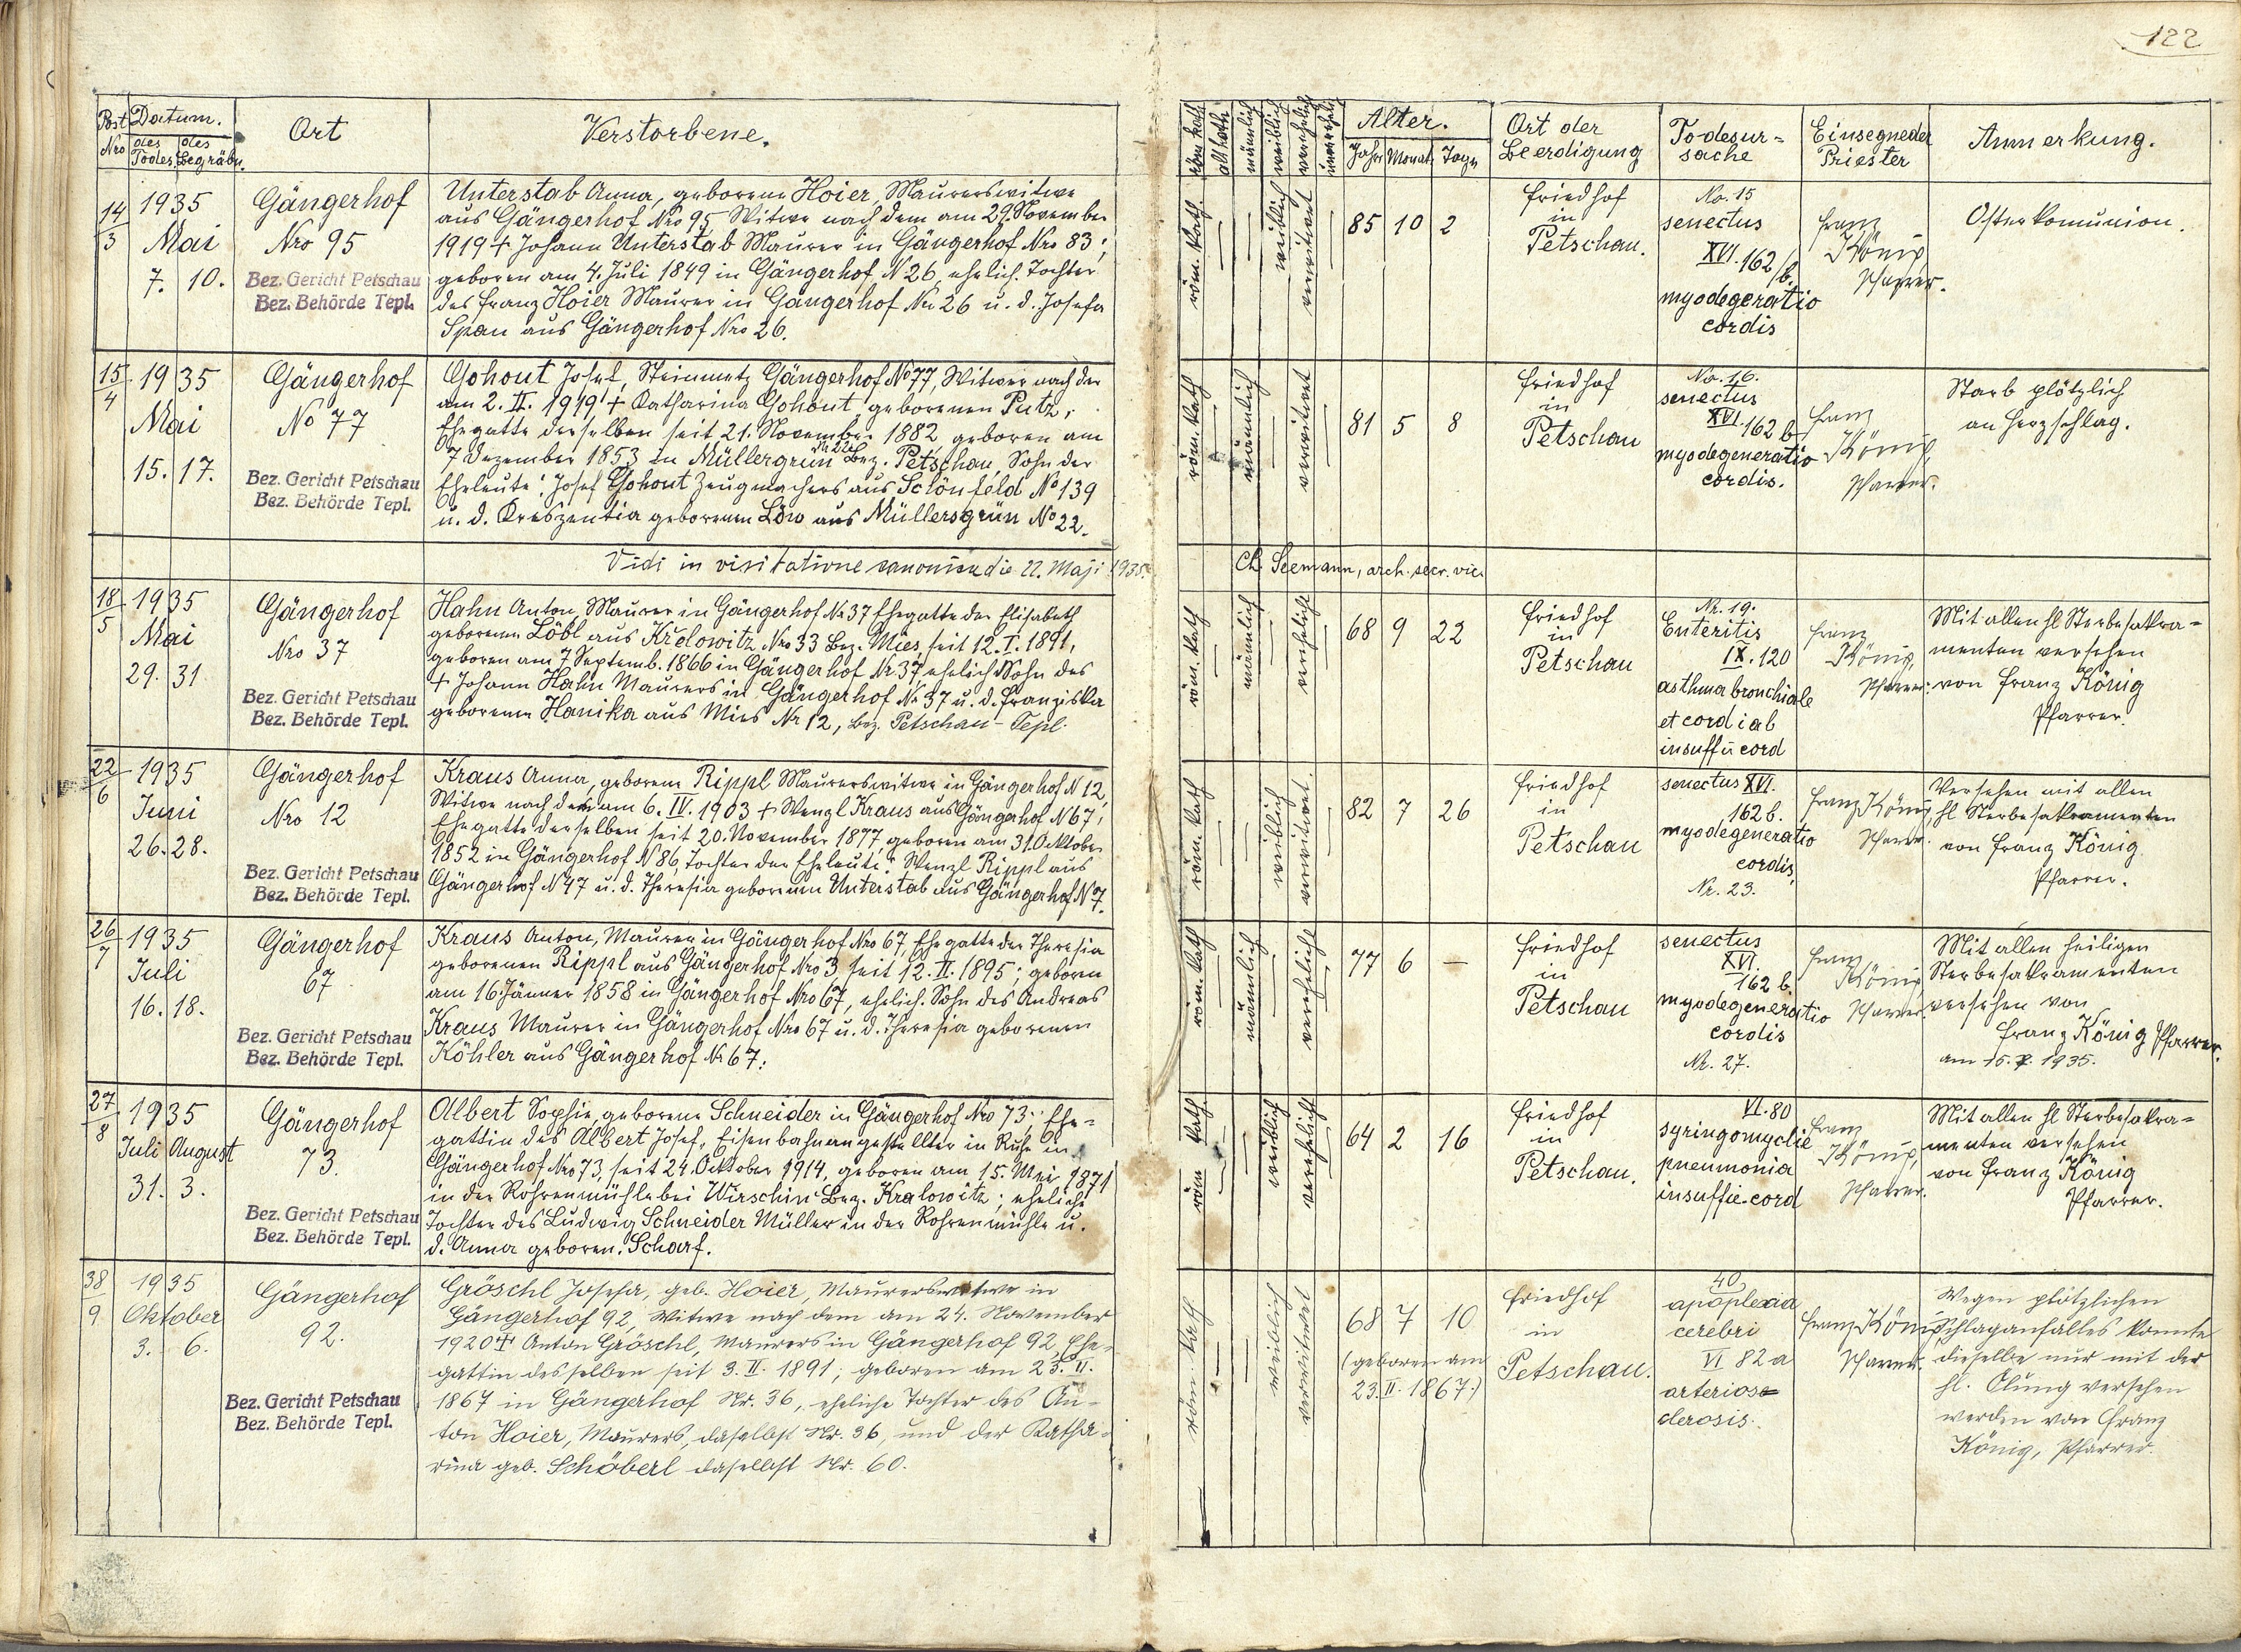 122
Post Nro
Datum.
des Todes
des Begräbn.
Ort
Verstorbene.
röm. kath.
altkath.
männlich
weiblich
verehelich
unverehel.
Alter.
Jahr
Monat
Tage
Ort der
Beerdigung
Todesur-
sache
Einsegneder
Priester
Anmerkung.
14
3
1935
Mai
7. 10.
Gängerhof
Nro 95
Bez. Gericht Petschau
Bez. Behörde Tepl.
Unterstab Anna, geborene Hoier, Maurerswitwe
aus Gängerhof Nro 95, Witwe nach dem am 29. November
1919 + Johann Unterstab Maurer in Gängerhof Nro 83;
geboren am 4. Juli 1849 in Gängerhof N 26, ehelich. Tochter
des Franz Hoier Maurer in Gängerhof Nr. 26 u. d. Josefa
Span aus Gängerhof Nro 26.
röm. kath.
weiblich
verwitwet
85 10 2
Friedhof
in
Petschau.
No. 15
senectus
XVI. 162/b.
myodegeratio
cordis
Franz
König
Pfarrer.
Osterkomunion.
15
4
1935
Mai
15. 17.
Gängerhof
No 77
Bez. Gericht Petschau
Bez. Behörde Tepl.
Gohout Josef, Steinmetz Gängerhof No 77, Witwer nach der
am 2. II. 1919 + Katharina Gohout geborenen Putz,
Ehegatte derselben seit 21. November 1882, geboren am
7 Dezember 1853 in Müllergrün Nr 22 Bez. Petschau, Sohn der
Eheleute: Josef Gohout Zeugmachers aus Schönfeld No 139
u. d. Kreszentia geborenen Löw aus Müllersgrün No 22.
röm. kath
männlich
verwitwet
81 5 8
Friedhof
in
Petschau
No. 16.
senectus
XVI. 162 b
myodegeneratio
cordis.
Franz
König,
Pfarrer.
Starb plötzlich
an Herzschlag.
Vidi in visitatione canonica die 22. Maji 1935.
Ch. Seemann, arch. secr. vic.
18
5
1935
Mai
29. 31.
Gängerhof
Nro 37
Bez. Gericht Petschau
Bez. Behörde Tepl.
Hahn Anton, Maurer in Gängerhof Nr 37 Ehegatte der Elisabeth
geborenen Löbl aus Krelowitz Nro 33 Bez. Mies, seit 12. I. 1891,
geboren am 7 Septemb. 1866 in Gängerhof Nr 37, ehelich Sohn des
+ Johann Hahn Maurers in Gängerhof Nr 37 u. d. Franziska
geborenen Hanika aus Mies Nr 12, Bez. Petschau - Tepl.
röm. kath
männlich
verehelicht
68 9 22
Friedhof
in
Petschau
Nr. 19.
Enteritis
IX. 120
asthma bronchiale
et cordiab
insuff ū cord
Franz
König,
Pfarrer.
Mit allen hl Sterbesakra=
menten versehen
von Franz König
Pfarrer.
22
6
1935
Juni
26. 28.
Gängerhof
Nro 12
Bez. Gericht Petschau
Bez. Behörde Tepl.
Kraus Anna, geborene Rippl Maurerswitwe in Gängerhof N 12,
Witwe nach dem am 6. IV. 1903 + Wenzl Kraus aus Gängerhof N 67,
Ehegatte derselben seit 20. November 1877 geboren am 31. Oktober
1852 in Gängerhof N 86, Tochter der Eheleute: Wenzl Rippl aus
Gängerhof N 47 u. d. Theresia geborenen Unterstab aus Gängerhof N 7.
röm. kath
weiblich
verwitwet.
82 7 26
Friedhof
in
Petschau
senectus XVI.
162 b.
myodegeneratio
cordis,
Nr. 23.
Franz König
Pfarrer.
Versehen mit allen
hl Sterbesakramenten
von Franz König
Pfarrer.
26
7
1935
Juli
16. 18.
Gängerhof
67
Bez. Gericht Petschau
Bez. Behörde Tepl.
Kraus Anton, Maurer in Gängerhof Nro 67, Ehegatte der Theresia
geborenen Rippl aus Gängerhof Nro 3 seit 12. II. 1895; geboren
am 16. Jänner 1858 in Gängerhof Nro 67, ehelich. Sohn des Andreas
Kraus Maurer in Gängerhof Nro 67 u. d. Theresia geborenen
Köhler aus Gängerhof Nr 67.
röm. kath
männlich
verehelicht
77 6 —
Friedhof
in
Petschau
senectus
XVI.
162 b.
myodegeneratio
cordis
Nr. 27.
Franz
König
Pfarrer.
Mit allen heiligen
Sterbesakramenten
versehen von
Franz König Pfarrer.
am 15. 7. 1935.
27
8
1935
Juli August
31. 3.
Gängerhof
73.
Bez. Gericht Petschau
Bez. Behörde Tepl.
Albert Sophie, geborene Schneider in Gängerhof Nro 73; Ehe=
gattin des Albert Josef, Eisenbahnangestellter in Ruhe in
Gängerhof Nro 73, seit 24. Oktober 1914, geboren am 15. Mai 1871
in der Rohrenmühle bei Wirschin Bez. Kralowitz; eheliche
Tochter des Ludwig Schneider Müller in der Rohrenmühle u.
d. Anna geboren. Scharf.
röm kath.
weiblich
verehelicht
64 2 16
Friedhof
in
Petschau.
VI. 80
syringomyelie
pneumonia
insuffic. cord
Franz
König,
Pfarrer.
Mit allen hl Sterbesakra=
menten versehen
von Franz König
Pfarrer.
38
9
1935
Oktober
3. 6.
Gängerhof
92.
Bez. Gericht Petschau
Bez. Behörde Tepl.
Gröschl Josefa, geb. Hoier, Maurerswitwe in
Gängerhof 92, Witwe nach dem am 24. November
1920 + Anton Gröschl, Maurers in Gängerhof 92, Ehe-
gattin desselben seit 3. II. 1891; geboren am 23. II.
1867 in Gängerhof Nr. 36, eheliche Tochter des An-
ton Hoier, Maurers, daselbst Nr. 36, und der Katha-
rina geb. Schöberl daselbst Nr. 60.
röm. kath.
weiblich
verwitwet
68 7 10
(geboren am
23. II. 1867.)
Friedhof
in
Petschau.
40
apoplexia
cerebri
VI 82 a
arterios
clerosis.
Franz König
Pfarrer.
Wegen plötzlichen
Schlaganfalles konnte
dieselbe nur mit der
hl. Ölung versehen
werden von Franz
König, Pfarrer.